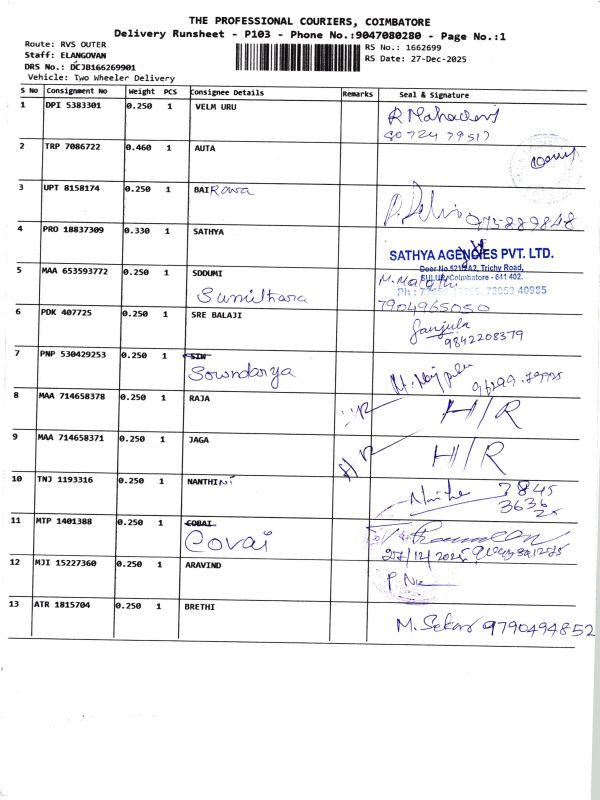 THE PROFESSIONAL COURIERS, COIMBATORE
Delivery Runsheet - P103 - Phone No.:9047080280 - Page No.:1
Route: RVS OUTER
Staff: ELANGOVAN
DRS No.: DCJB166269901
Vehicle: Two Wheeler Delivery
RS No.: 1662699
RS Date: 27-Dec-2025
S No Consignment No Weight PCS Consignee Details Remarks Seal & Signature
1 DPI 5383301 0.250 1 VELM URU
R Mahadevi
80724 79517
2 TRP 7086722 0.460 1 AUTA
3 UPT 8158174 0.250 1 BAIRawa
4 PRO 18837309 0.330 1 SATHYA
SATHYA AGENCIES PVT. LTD.
Trichy Road,
Coimbatore - 641 402.
5 MAA 653593772 0.250 1 SDDUMI
Sumithara
M. Malathi
7904965050
6 PDK 407725 0.250 1 SRE BALAJI
Sanjula
9842208379
7 PNP 530429253 0.250 1 SIW
Sowndarya
8 MAA 714658378 0.250 1 RAJA
H/R
9 MAA 714658371 0.250 1 JAGA
H/R H/R
10 TNJ 1193316 0.250 1 NANTHINI
7845
3636
11 MTP 1401388 0.250 1 COBAI
Covai
27/12/2025
12 MJI 15227360 0.250 1 ARAVIND
13 ATR 1815704 0.250 1 BRETHI
M. Sekar 9790494852